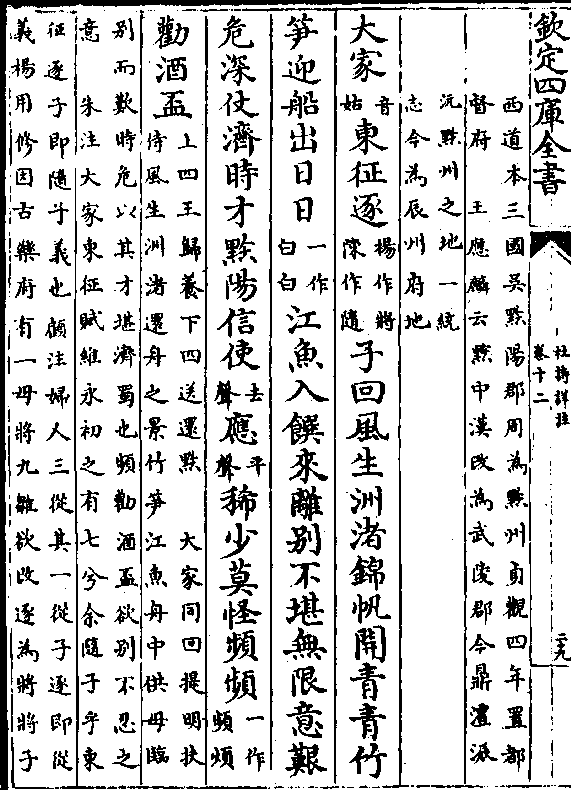 欽定四庫全書
杜詩詳註
卷十二
二九
西道本三國吳黔陽郡周為黔州貞觀四年置都
督府　王應麟云黔中漢改為武陵郡今鼎澧辰
沅黔州之地一統
志今為辰州府地
大家音姑東征逐楊作將陳作隨子回風生洲渚錦帆開青青竹
笋迎船出日日一作白白江魚入饌來離別不堪無限意艱
危深仗濟時才黔陽信使去聲應平聲稀少莫怪頻頻一作頻煩
勸酒盃上四王歸養下四送還黔　大家同回提明扶
侍風生洲渚還舟之景竹笋江魚舟中供母臨
別而歎時危以其才堪濟蜀也頻勸酒盃欲別不忍之
意　朱注大家東征賦維永初之有七兮余隨子乎東
征逐子即隨子義也顧注婦人三從其一從子逐即從
義楊用修因古樂府有一母將九雛欲改逐為將將子